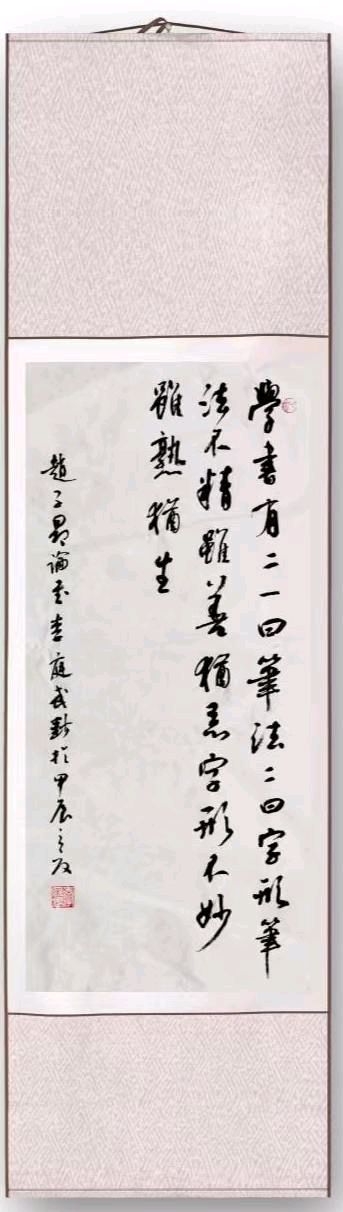 學書有二一曰筆法二曰字形筆
法不精雖善猶惡字形不妙
雖熟猶生
趙子昂論書李庭武錄於甲辰之夏